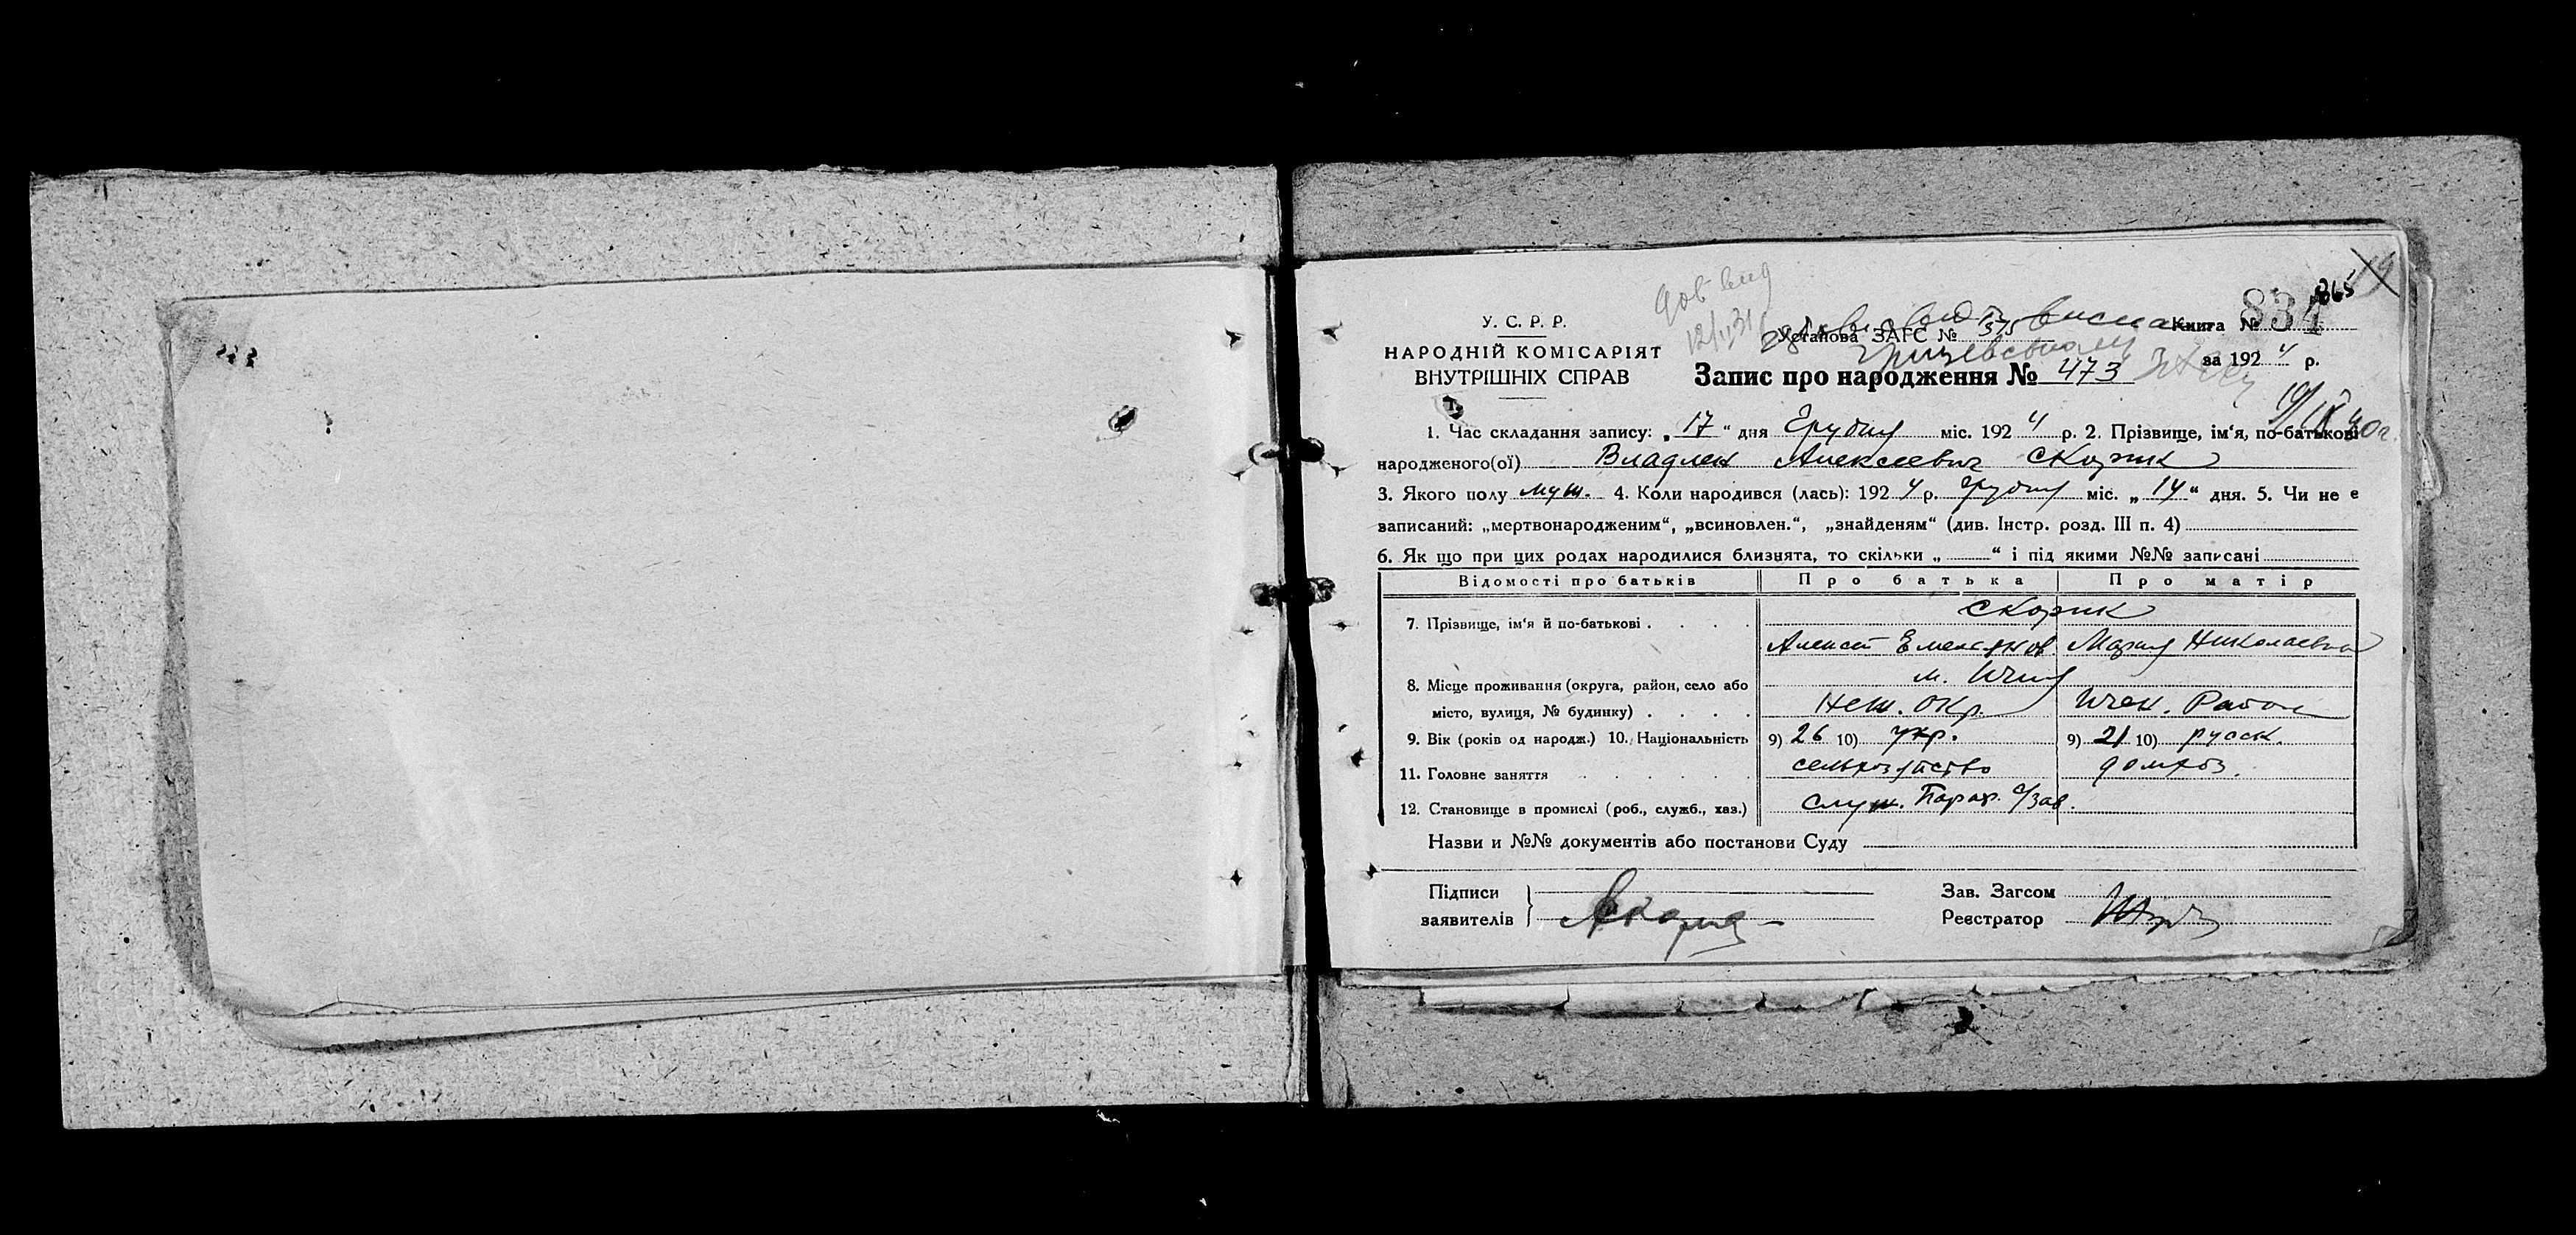 865
834
У. С. Р. Р.
НАРОДНІЙ КОМІСАРІЯТ
ВНУТРІШНІХ СПРАВ
Установа ЗАГС № 375 Книга №
за 1924 р.
Запис про народження № 473
1. Час складання запису: „17“ дня Грудня міс. 1924 р. 2. Прізвище, ім‘я, по-батькові
народженого(ої) Владлен Алексеевич Скорик
3. Якого полу муж. 4. Коли народився (лась): 1924 р. Грудня міс. „14“ дня. 5. Чи не є
записаний: „мертвонародженим“, „всиновлен.“, „знайденям“ (див. Інстр. розд. III п. 4)
6. Як що при цих родах народилися близнята, то скільки „ “ і під якими №№ записані
Відомості про батьків Про батька Про матір
Скорик
7. Прізвище, ім‘я й по-батькові
Алексей Емельянов. Мария Николаевна
м. Ичня
8. Місце проживання (округа, район, село або
місто, вулиця, № будинку) Неж. Окр. Ичен. Район
9. Вік (років од народж.) 10. Національність 9) 26 10) укр. 9) 21 10) русск.
11. Головне заняття сельхозяйство домхоз.
12. Становище в промислі (роб., служб., хаз.) служ.
Назви и №№ документів або постанови Суду
Підписи
заявителів
Зав. Загсом
Реєстратор